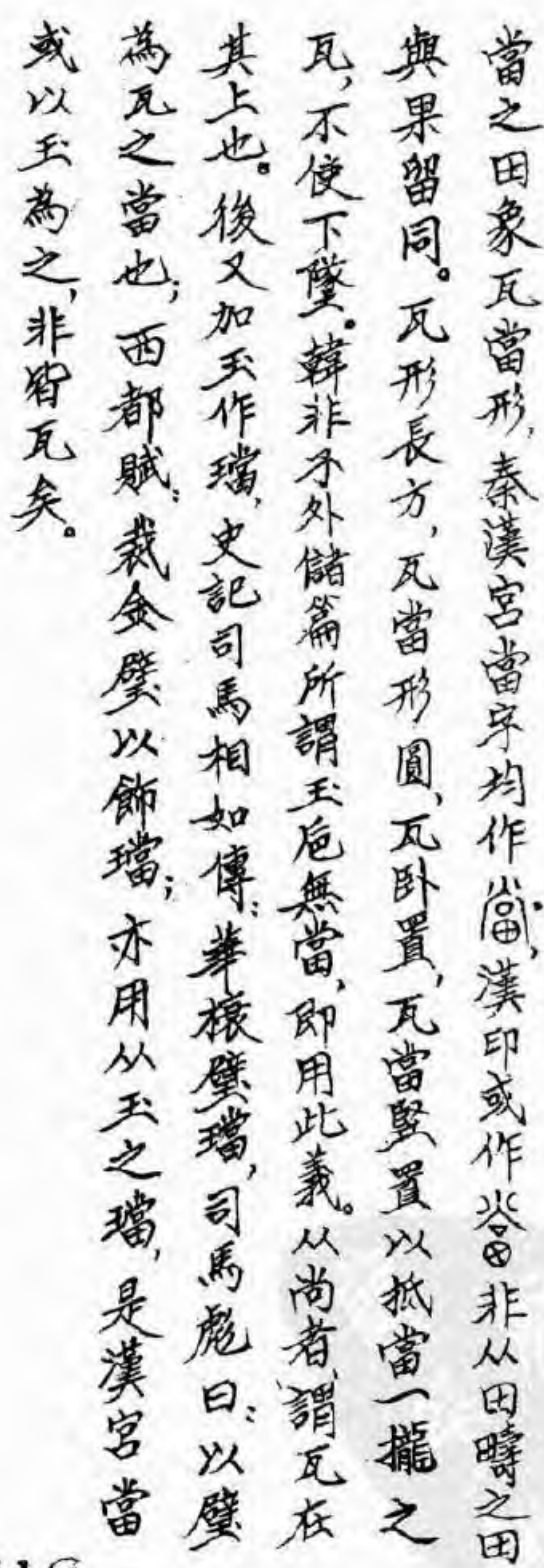 當之田象瓦當形,秦漢宮當字均作當,漢印或作當非从田疇之田
與果留同。瓦形長方,瓦當形圓,瓦卧置,瓦當竪置以抵當一攏之
瓦,不使下墜。韓非子外儲篇所謂玉卮無當,即用此義。从尚者,謂瓦在
其上也。後又加玉作璫,史記司馬相如傳:華榱璧璫,司馬彪曰:以璧
為瓦之當也;西都賦:裁金璧以飾璫;亦用从玉之璫,是漢宮當
或以玉為之,非皆瓦矣。